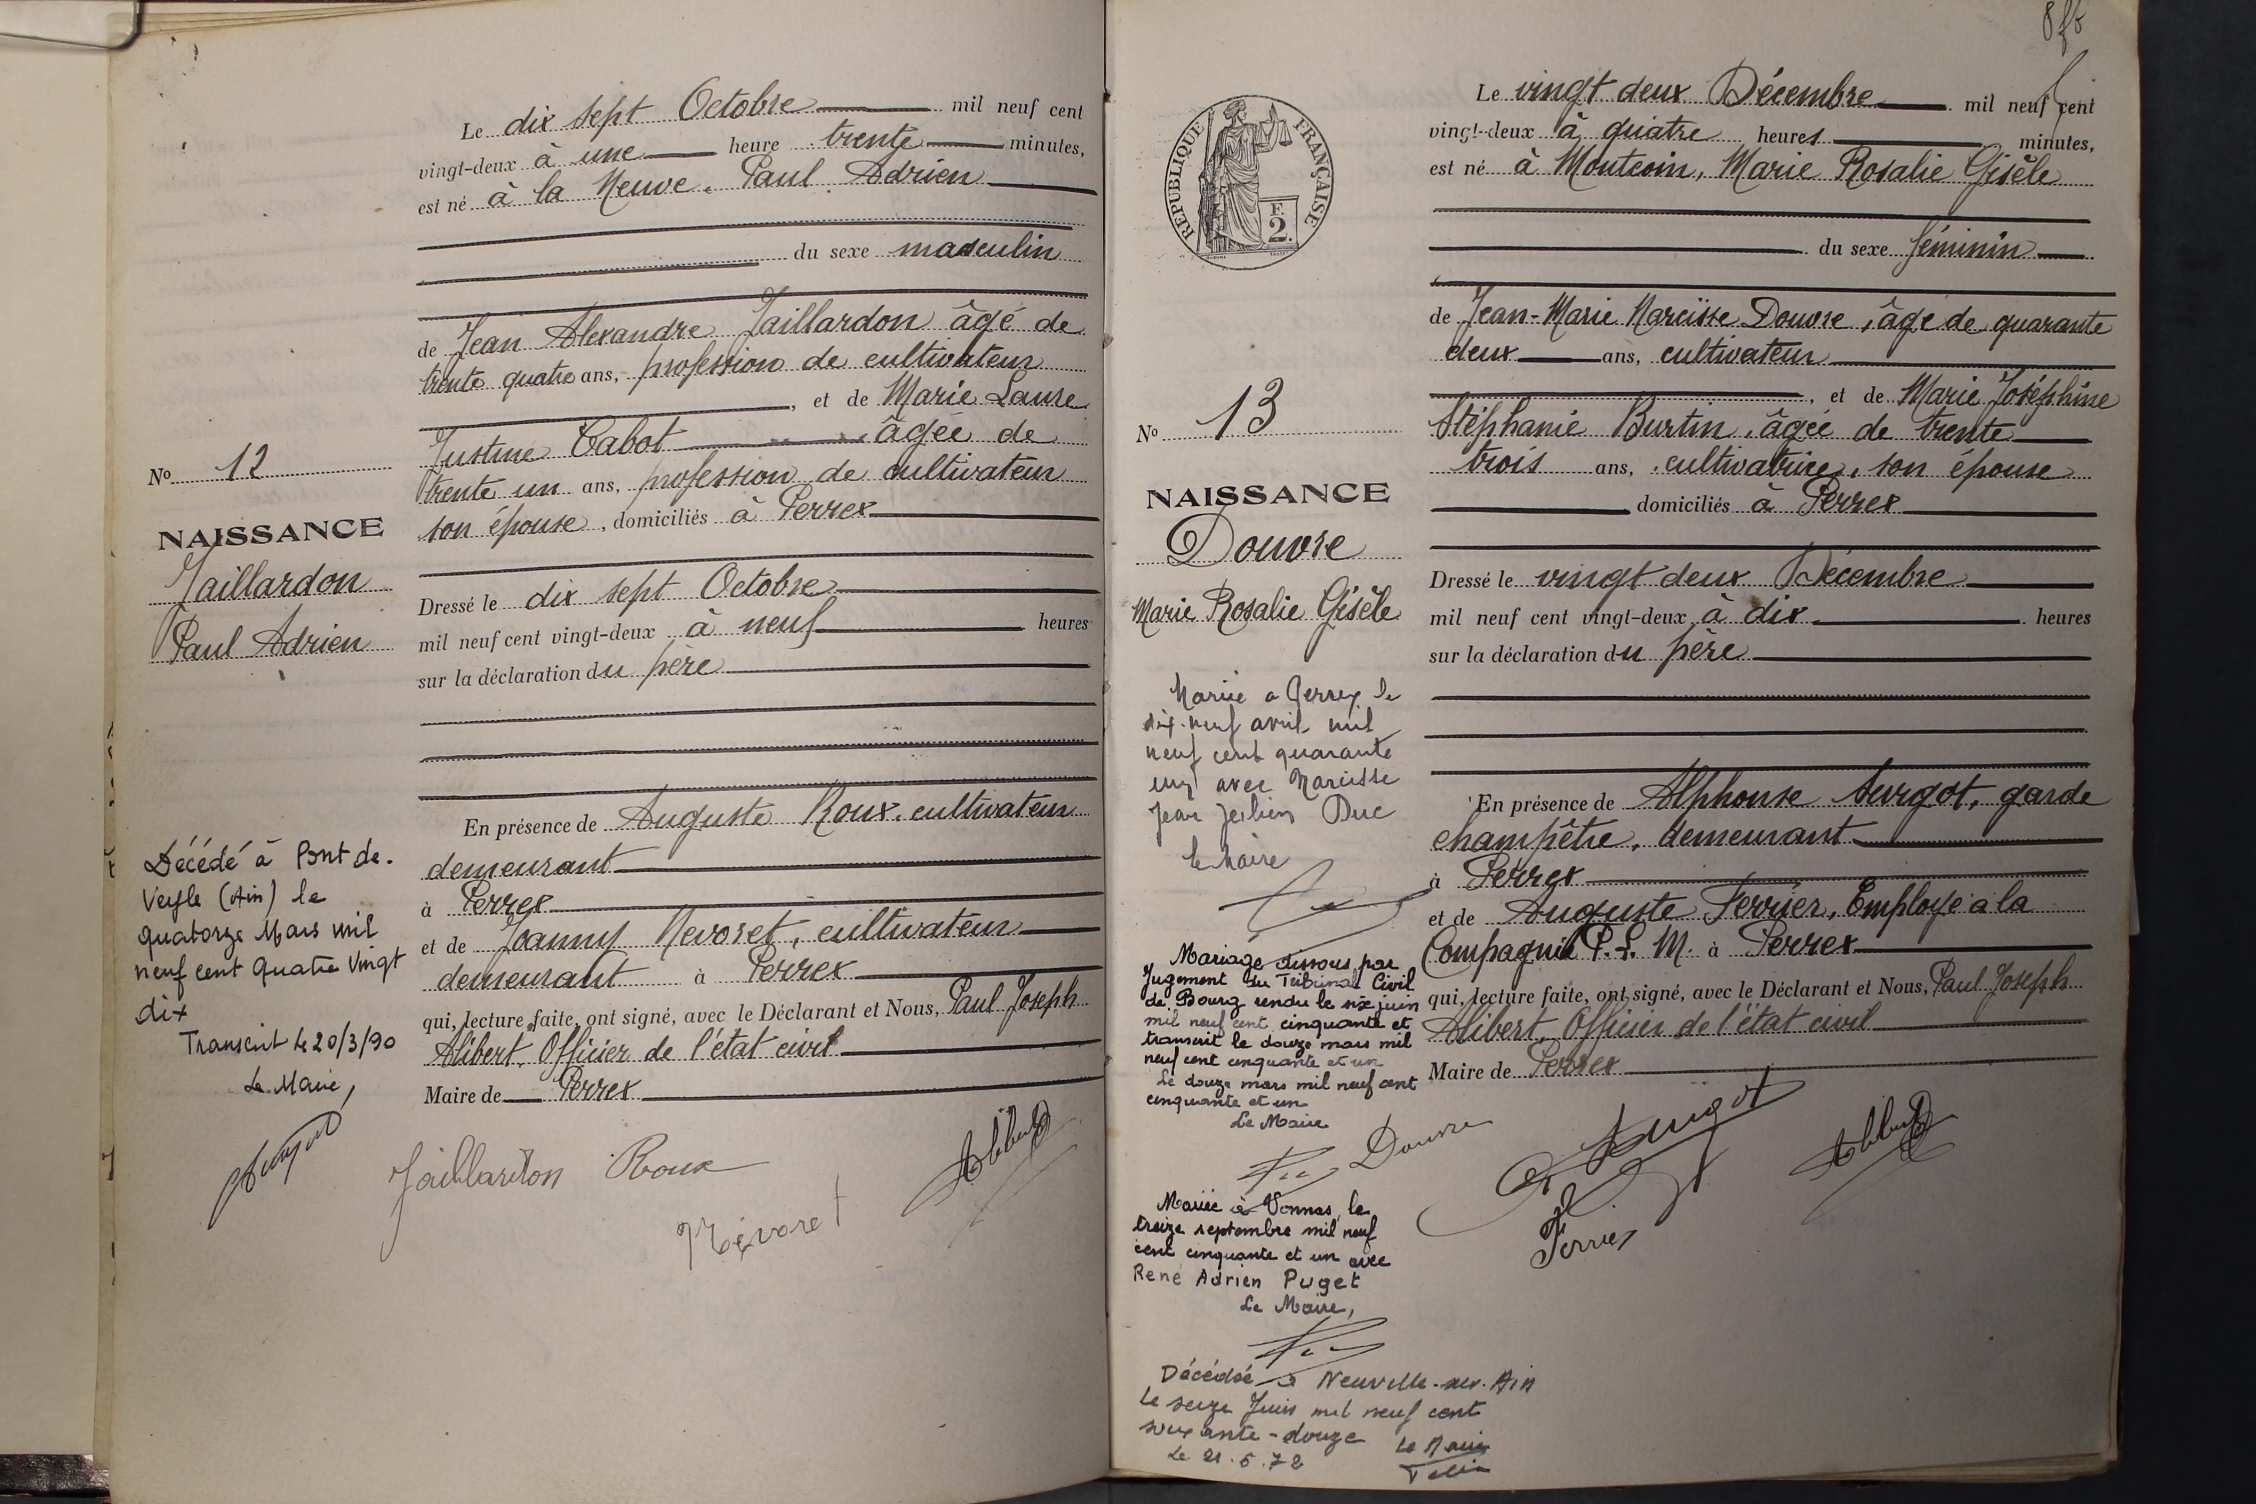 Le dix sept Octobre mil neuf cent
vingt-deux à une heure trente minutes,
est né à la Neuve. Paul Adrien
du sexe masculin
de Jean Alexandre Jaillardon âgé de
trente quatre ans, profession de cultivateur
, et de Marie Laure
Justine Cabot âgée de
trente un ans, profession de cultivateur
son épouse, domiciliés à Perrex
Nº 12
NAISSANCE
Jaillardon
Paul Adrien
Dressé le dix sept Octobre
mil neuf cent vingt-deux à neuf heures
sur la déclaration du père
En présence de Auguste Roux. cultivateur
demeurant
à Perrex
et de Joanny Nevoret, cultivateur
demeurant à Perrex
qui, lecture faite, ont signé, avec le Déclarant et Nous, Paul Joseph
Alibert, Officier de l'état civil
Maire de Perrex
Décédé à Pont de.
Veyle (Ain) le
quatorze Mars mil
neuf cent Quatre Vingt
dix
Transcrit le 20/3/90
Le Maire,
Jaillardon Roux
Névoret
Alibert
8
RÉPUBLIQUE FRANÇAISE
F.
2.
Le vingt deux Décembre mil neuf cent
vingt-deux à quatre heures minutes,
est né à Montcoin, Marie Rosalie Gisèle
du sexe féminin
de Jean-Marie Narcisse Douvre, âgé de quarante
deux ans, cultivateur
, et de Marie Joséphine
Stéphanie Burtin, âgée de trente
trois ans, cultivatrice, son épouse
domiciliés à Perrex
Nº 13
NAISSANCE
Douvre
Marie Rosalie Gisèle
Dressé le vingt deux Décembre
mil neuf cent vingt-deux à dix heures
sur la déclaration du père
En présence de Alphonse Surgot, garde
champêtre, demeurant
à Perrex
et de Auguste Ferrier, Employé à la
Compagnie P.L.M. à Perrex
qui, lecture faite, ont signé, avec le Déclarant et Nous, Paul Joseph
Alibert, Officier de l'état civil
Maire de Perrex
Mariée a Perrex le
dix-neuf avril mil
neuf cent quarante
un avec Narcisse
Jean Duc
le Maire
Mariage dissous par
Jugement du Tribunal Civil
de Bourg rendu le six juin
mil neuf cent cinquante et
transcrit le douze mars mil
neuf cent cinquante et un
Le douze mars mil neuf cent
cinquante et un
Le Maire
Douvre
Alibert
Ferrier
Mariée à Vonnas, le
treize septembre mil neuf
cent cinquante et un avec
René Adrien Puget
Le Maire,
Décédée à Neuville-sur-Ain
Le seize Juin mil neuf cent
soixante-douze Le Maire
Le 21.6.72